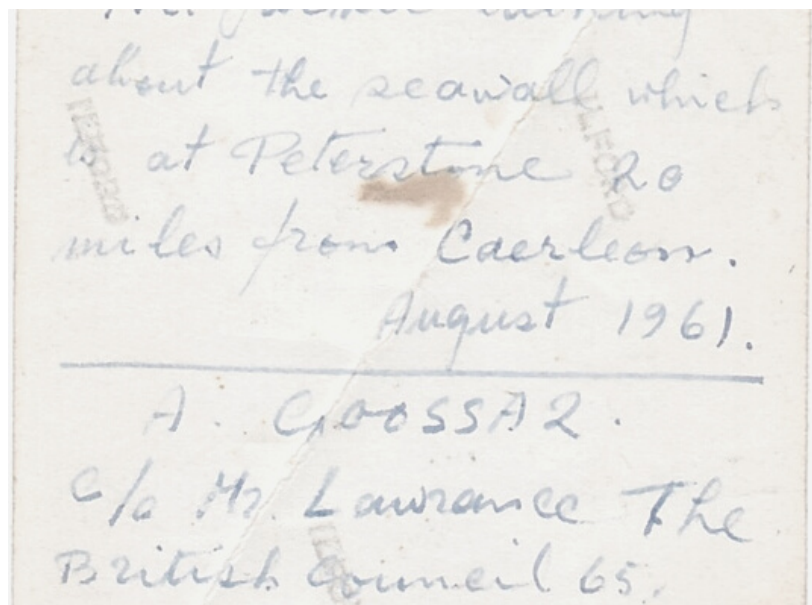 about the seawall which
is at Peterstone 20
miles from Caerleon.
August 1961.
A. GOOSSAZ.
c/o Mr. Lawrance The
British Council 65.
ILFORD